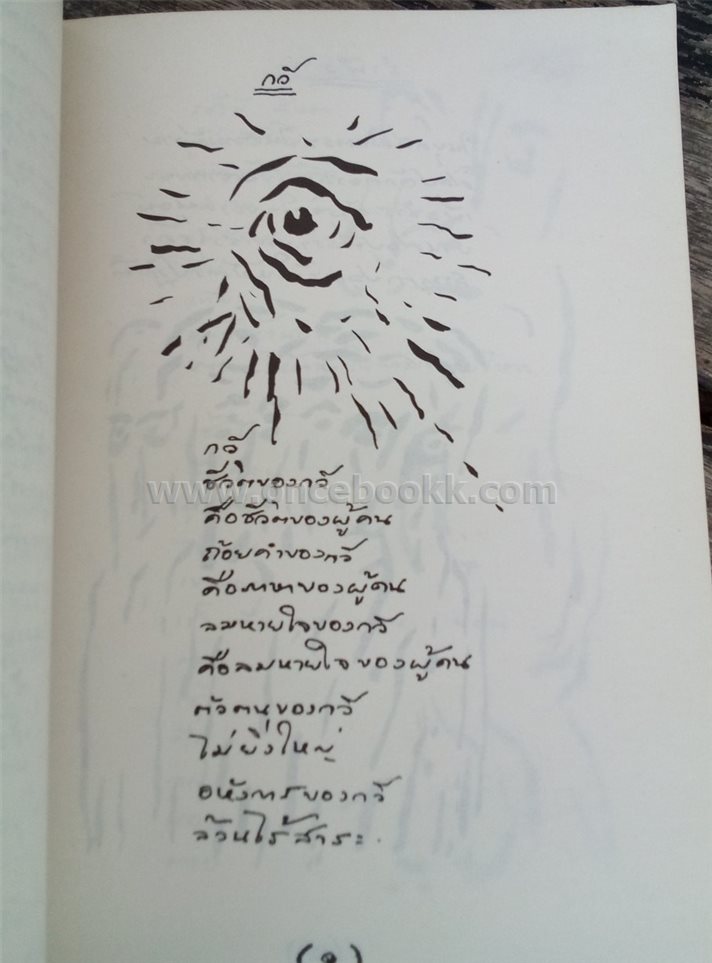 กวี
กวี
ชีวิตของกวี
www.oncebookk.com
คือชีวิตของผู้คน
ถ้อยคำของกวี
คือภาษาของผู้คน
ลมหายใจของกวี
คือลมหายใจของผู้คน
ตัวตนของกวี
ไม่ยิ่งใหญ่
อหังการของกวี
ล้วนไร้สาระ.